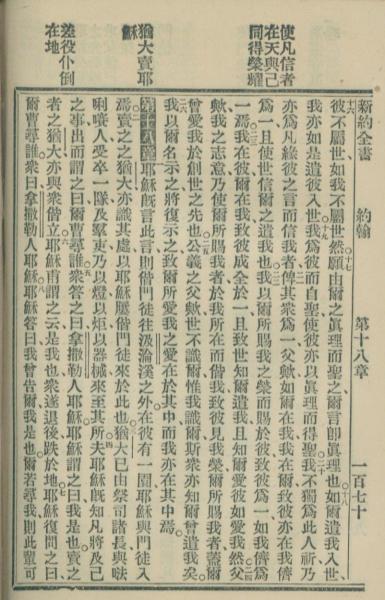 新約全書 約翰 第十八章 一百七十
使凡信者
在天與己
同得榮耀
猶大賣耶
穌
差役仆倒
在地
彼不屬世如我不屬世然願由爾之眞理而聖之爾言卽眞理也如爾遣我入世
我亦如是遣彼入世我爲彼而自聖使彼亦以眞理而得聖我不獨爲此人祈乃
亦爲凡緣彼之言而信我者俾其衆爲一父歟如爾在我我在爾致彼亦在我儕
爲一且使世信爾之遣我也我以爾所賜我之榮而賜於彼致彼爲一如我儕爲
一焉我在彼爾在我致彼成全於一且致世知爾遣我且知爾愛彼如愛我然父
歟我之志意乃使爾所賜我者於我所在而偕我致彼見我榮爾所賜我者蓋爾
曾愛我於創世之先也公義之父歟世不識爾惟我識爾斯衆亦知爾曾遣我矣
我以爾名示之將復示之致爾所愛我之愛在於其中而我亦在其中焉
第十八章耶穌旣言此言則偕門徒往汲淪溪之外在彼有一園耶穌與門徒入
焉賣之之猶大亦識其處以耶穌屢偕門徒來於此也猶大已由祭司諸長與
唎人受卒一隊及羣吏乃以燈以炬以器械來至其所夫耶穌旣知凡將及己
之事出而謂之曰爾曹尋誰衆答之曰拿撒勒人耶穌耶穌謂之曰我是也賣之
者之猶大亦與衆偕立耶穌甫謂之云是我也衆遂退後跌於地耶穌復問之曰
爾曹尋誰衆曰拿撒勒人耶穌耶穌答曰我曾告爾我是也爾若尋我則此輩可